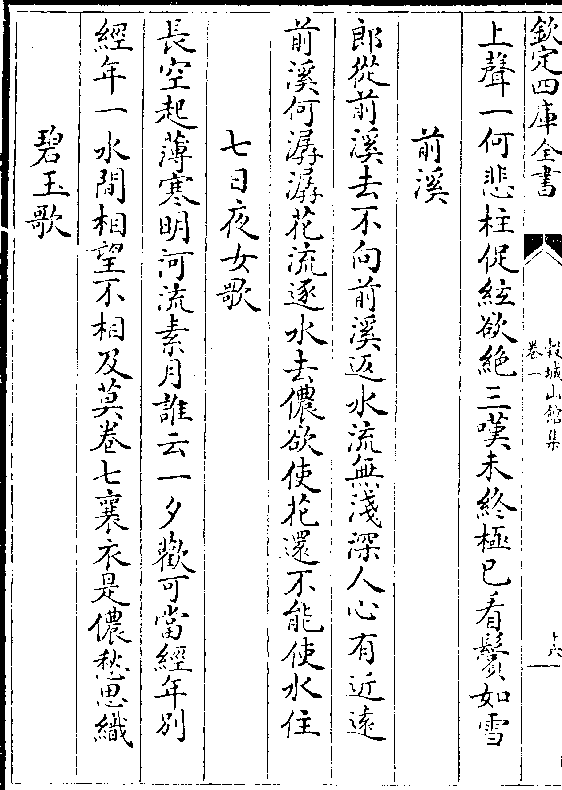 欽定四庫全書
穀城山館集
卷一
十六
上聲一何悲柱促絃欲絶三嘆未終極已看鬢如雪
前溪
郎從前溪去不向前溪返水流無淺深人心有近遠
前溪何潺潺花流逐水去儂欲使花還不能使水住
七日夜女歌
長空起薄寒明河流素月誰云一夕歡可當經年别
經年一水間相望不相及莫卷七襄衣是儂愁思織
碧玉歌